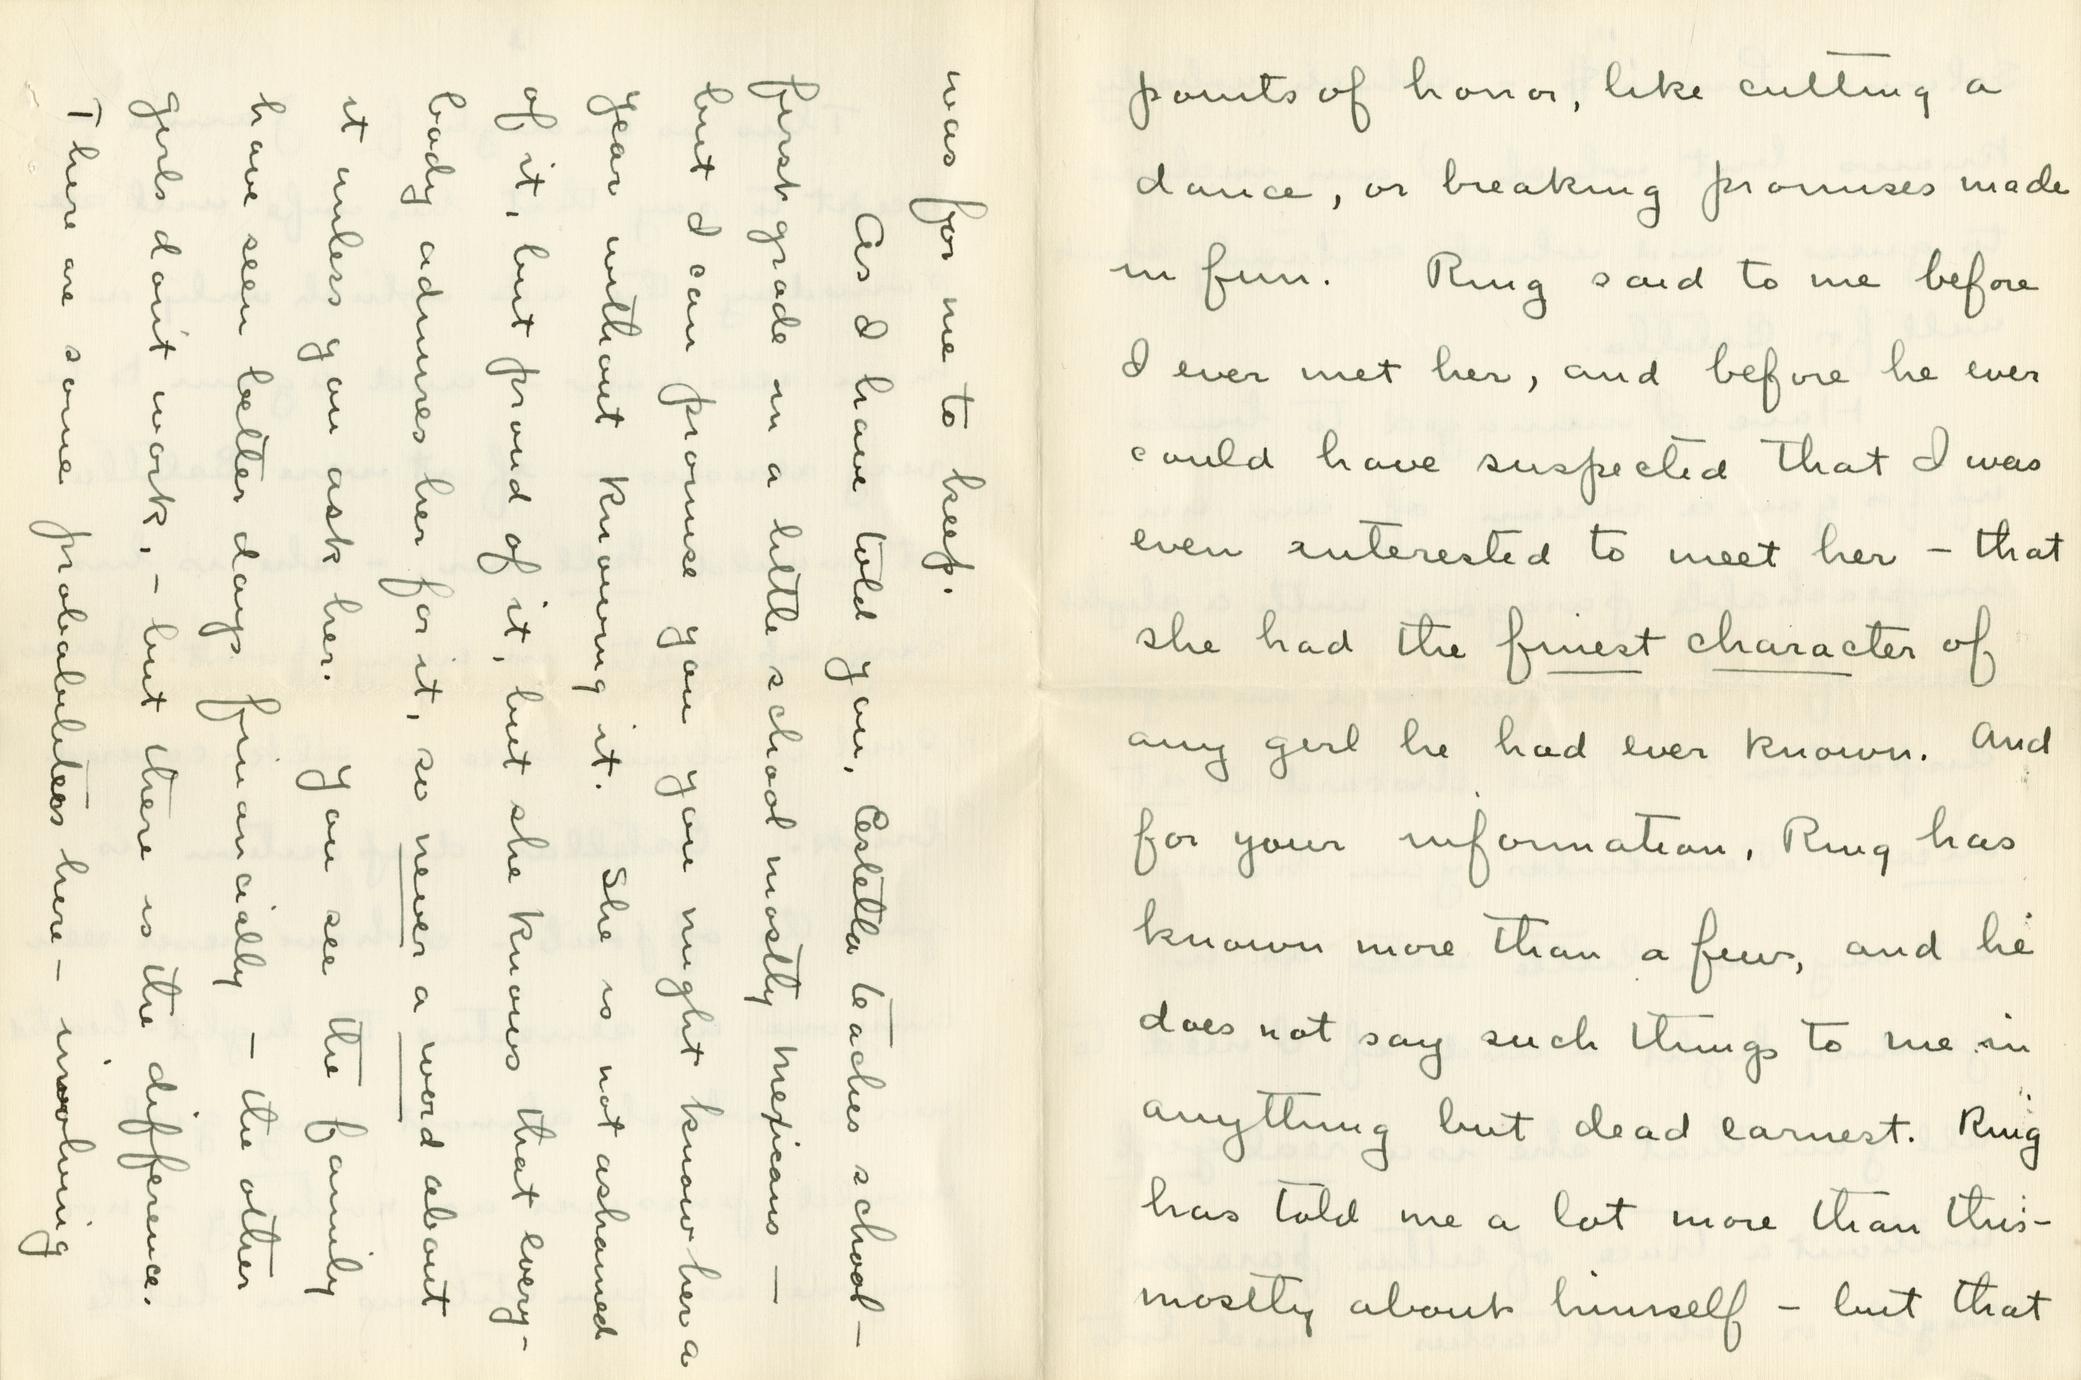 points of honor, like cutting a
dance, or breaking promises made
in fun. Ring said to me before
I ever met her, and before he ever
could have suspected that I was
even interested to meet her – that
she had the finest character of
any girl he had ever known. And
for your information, Ring has
known more than a few, and he
does not say such things to me in
anything but dead earnest. Ring
has told me a lot more than this –
mostly about himself – but that
was for me to keep.
As I have told you, Estella teaches school –
first grade in a little school mostly Mexicans –
but I can promise you you might know her a
year without knowing it. She is not ashamed
of it, but proud of it, but she knows that every-
body admires her for it, so never a word about
it unless you ask her. You see the family
have seen better days financially – the other
girls don't work, – but there is the difference.
There are some probabilities here – involving